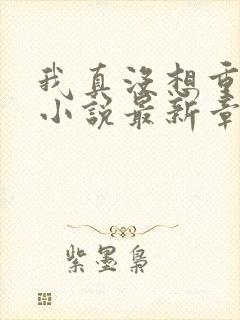 我真没想重
小说最新章
紫墨枭